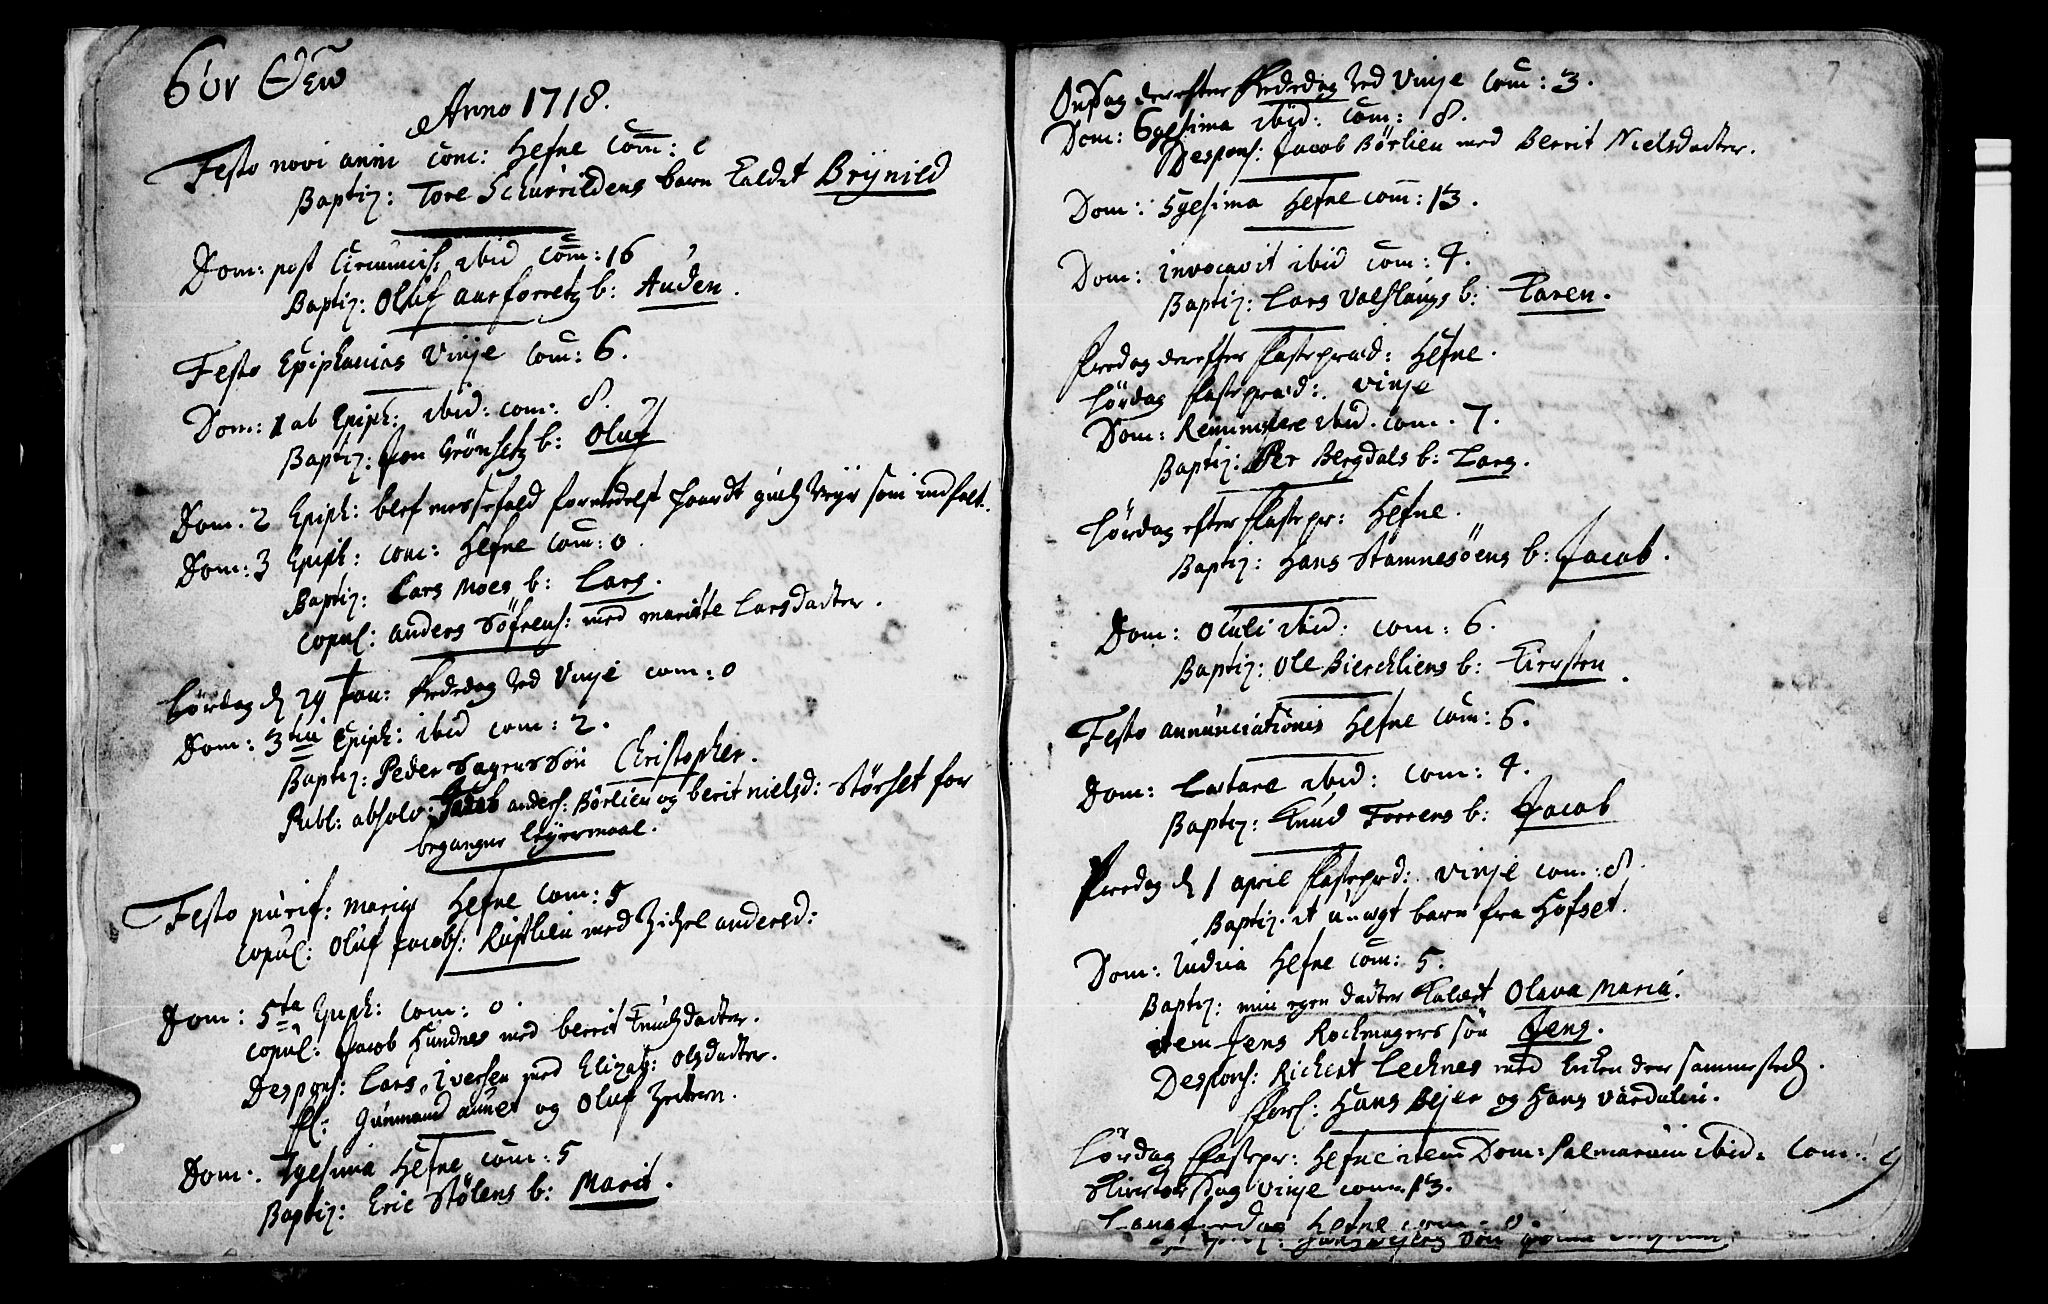 Σὺν Θεῷ
Anno 1718.
Festo novi anni conc: Hefne com: 0
Baptiz: Tore barn kaldet Brÿnild
Dom: post Circumcis: ibid com: 16
Baptiz: Oluf b: Auden.
Festo Epiphanias Vinje com: 6.
Dom: 1 ab Epiph: ibid: com: 8.
Baptiz: Jon Grönsetz b: Oluf
Dom. 2 Epiph: blef messefald formedelst haardt som indfalt.
Dom: 3 Epiph: conc: Hefne com: 0.
Baptiz: Lars Moes b: Lars.
Copul: anders Söfrens: med marite Larsdatter.
Lördag d. 29 Jan: Prædedag ved Vinje com: 0
Dom: 3tia Epiph: ibid com: 2.
Baptiz: Peder Sagens Sön Christopher.
Publ: absolv: Jacob anders: Börlien og berit nielsd: Störset for
begangne leÿermaal.
Festo purif: mariæ Hefne com: 5
Copul: Oluf Jacobs: Rustlien med Zidzel andersd:
Dom: 5ta Epiph: com: 0.
Copul: Jacob Hundnes med berrit Knudzdatter.
Despons: Lars Iversen med Elizab: Olsdatter.
fl: Gunmund aunet og Oluf
Dom. 7gesima Hefne com: 5
Baptiz: Eric Stölens b: Marit.
7
Onsdag derefter Prædedag ved Vinje com: 3.
Dom: 6gesima ibid: com: 8.
Despons: Jacob Börlien med Berrit Nielsdatter.
Dom: 5gesima Hefne com: 13.
Dom: invocavit ibid com: 4.
Baptiz: Lars Valslaugs b: Karen.
Fredag derefter fastepræd: Hefne.
Lördag fastepræd: vinje
Dom: Reminiscere ibid. com. 7.
Baptiz: Per Bergdals b: Lars.
Lördag efter fastepr: Hefne.
Baptiz: Hans Stamnesöens b: Jacob.
Dom: Oculi ibid: com: 6.
Baptiz: Ole Bierchliens b: Kiersten.
Festo annunciationis Hefne com: 6.
Dom: Lætare ibid: com: 4.
Baptiz: Knud Forrens b: Jacob
Fredag d. 1 april fastepræd: vinje com: 8.
Baptiz. it uægt barn fra Hofset.
Dom: Judica Hefne com: 5.
Baptiz: min egen datter kaldet Olava Maria.
item Jens Rochmagers sön Jens.
Despons: Richert Lechnes med enken der sammestedz.
Forl: Hans Bejer og Hans Vardalen.
Lördag fastepr: Hefne item Dom: Palmarum ibid. com: 9
Skiertorsdag vinje com. 13.
Langfredag Hefne com. 0.